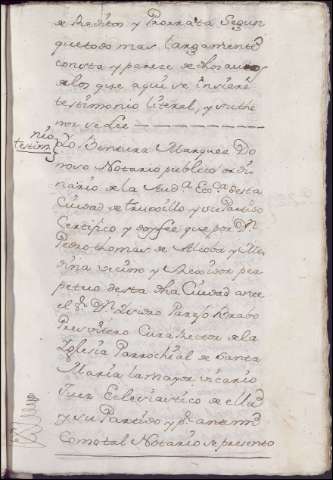 de Reditos y Prorrata Segun
que todo mas largamente
consta y parece de dhos autos
de los que aqui se insiere
testimonio literal, y su the
nor se Lee
testimnio
Yo Bentura Marquez Do
noso Notario publico ordi
nario de la Aud.ª Ecc.ª desta
Ciudad de truxillo y su Partido
Certifico y doy fee que por D.n
Pedro thomas de y Me
dina vecino y Rexidor per
petuo desta dha Ciudad ante
el S.r D.n Parejo Bravo
Presvitero Cura Rector de la
Iglesia Parrochial de Santa
Maria la mayor vicario
Juez Eclesiastico de ella
y su Partido y p.r ante mi
Como tal Notario se presento